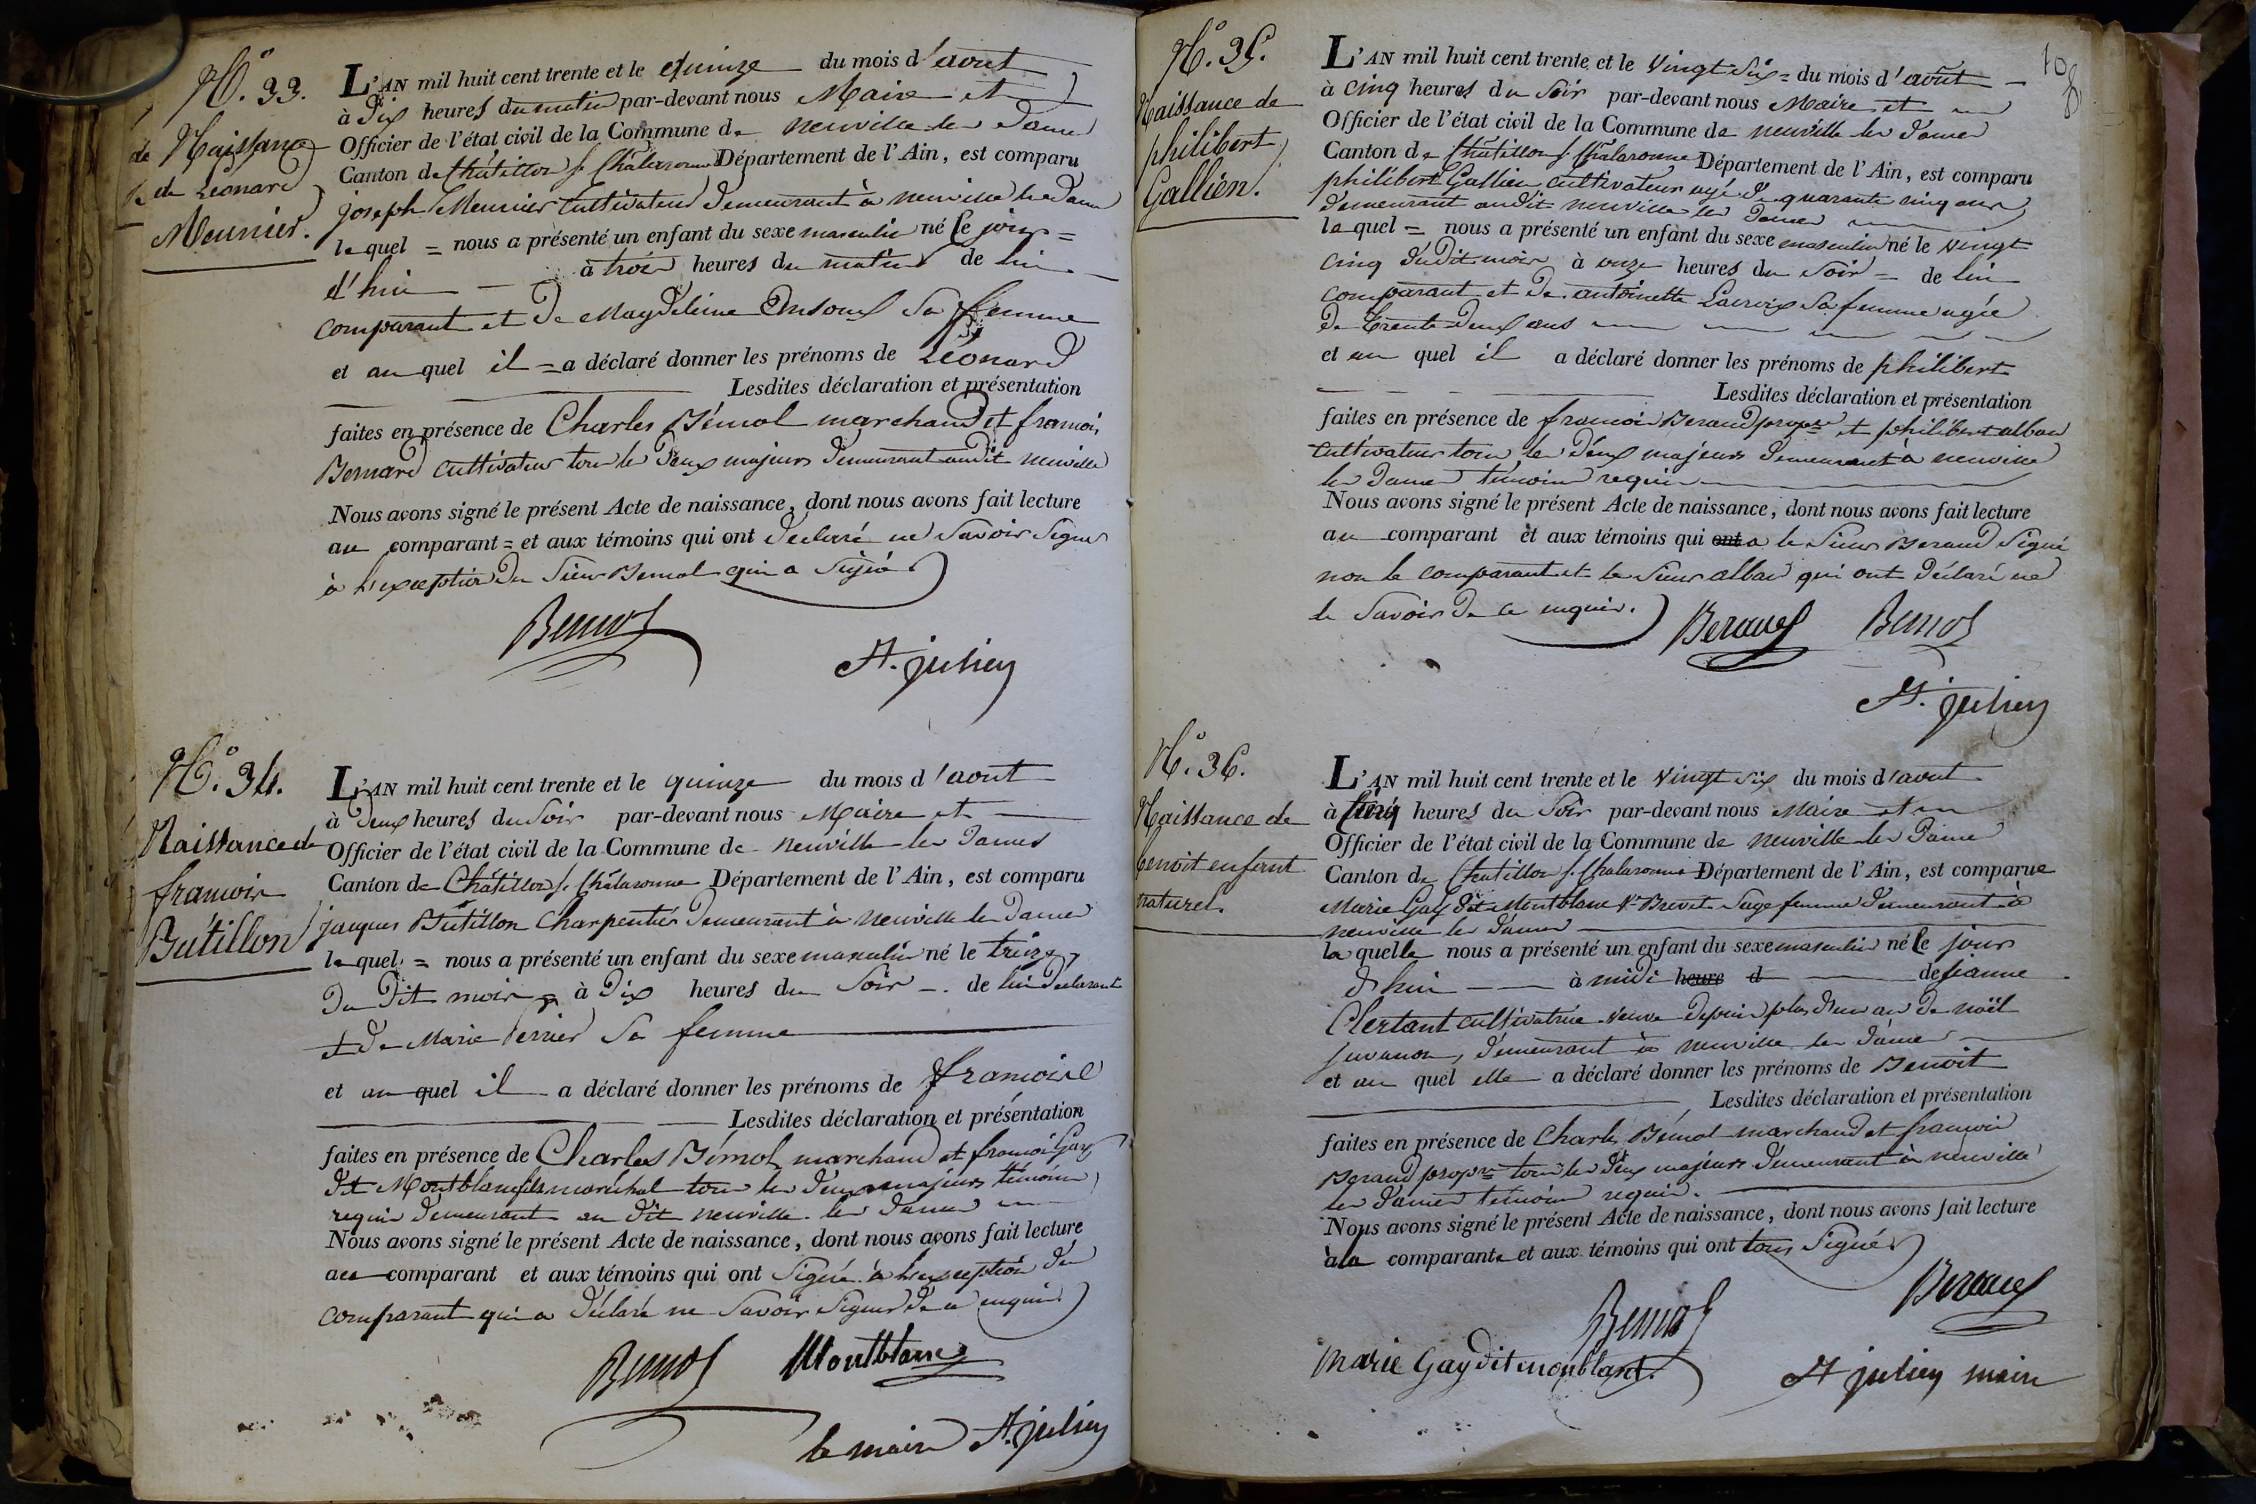 N.° 33.
Naissance
de Léonard
Meunier.
L'AN mil huit cent trente et le quinze du mois d'aout
à Dix heures du matin par-devant nous Maire et
Officier de l'état civil de la Commune de neuville les Dames
Canton de Châtillon s. Châlaronne Département de l'Ain, est comparu
joseph Meunier Cultivateur demeurant à neuville les Dames
lequel = nous a présenté un enfant du sexe masculin né le jour =
d'hui à trois heures du matin de lui
comparant et de Magdeleine sa femme
et au quel il = a déclaré donner les prénoms de Léonard
Lesdites déclaration et présentation
faites en présence de Charles Bémol marchand et francois
Bernard cultivateur tous les deux majeurs demeurant audit neuville
Nous avons signé le présent Acte de naissance, dont nous avons fait lecture
au comparant = et aux témoins qui ont déclaré ne savoir signer
à l'exception du sieur Bemol qui a signé
Bemol
St. julien
N.° 34.
Naissance de
francois
Bútillon
L'AN mil huit cent trente et le quinze du mois d'aout
à deux heures du soir par-devant nous Maire et
Officier de l'état civil de la Commune de neuville les dames
Canton de Châtillon s. Châlaronne Département de l'Ain, est comparu
jacques Bútillon Charpentier demeurant à neuville les dames
lequel = nous a présenté un enfant du sexe masculin né le treize
du dit mois à dix heures du soir de lui déclarant
et de Marie Perrier sa femme
et au quel il a déclaré donner les prénoms de francois
Lesdites déclaration et présentation
faites en présence de Charles Bémol marchand et francois Gay
dit Montblanc fils maréchal tous les deux majeurs témoins
requis demeurant au dit neuville les dames
Nous avons signé le présent Acte de naissance, dont nous avons fait lecture
au comparant et aux témoins qui ont signé à l'exception du
comparant qui a déclaré ne savoir signer de ce enquis
Bemol Montblanc
le maire St. julien
108
N.° 35.
Naissance de
philibert
Gallien.
L'AN mil huit cent trente et le vingt six = du mois d'août
à cinq heures du soir par-devant nous Maire et
Officier de l'état civil de la Commune de neuville les dames
Canton de Châtillon s. Châlaronne Département de l'Ain, est comparu
philibert Gallien cultivateur agé de quarante cinq ans
demeurant audit neuville les dames
lequel = nous a présenté un enfant du sexe masculin né le vingt
cinq dudit mois à onze heures du soir = de lui
comparant et de antoinette Lacroix sa femme agée
de trente deux ans
et au quel il a déclaré donner les prénoms de philibert
Lesdites déclaration et présentation
faites en présence de francois Beraud prop.re et philibert alban
cultivateur tous les deux majeurs demeurant à neuville
les dames témoins requis
Nous avons signé le présent Acte de naissance, dont nous avons fait lecture
au comparant et aux témoins qui ont a le sieur Beraud signé
non le comparant et le sieur alban qui ont déclaré ne
le savoir de ce enquis.
Beraud Bemol
St. julien
N.° 36.
Naissance de
benoit enfant
naturel.
L'AN mil huit cent trente et le vingt six du mois d'aout
à cinq heures du soir par-devant nous Maire et
Officier de l'état civil de la Commune de neuville les Dames
Canton de Chatillon s. Chalaronne Département de l'Ain, est comparue
Marie Gay dit Montblanc V.e Brevet sage femme demeurant à
neuville les dames
laquelle nous a présenté un enfant du sexe masculin né le jour
d'hui à midi heure d de jeanne
Clertant cultivatrice veuve depuis plus d'un an de noël
juvanon, demeurant à neuville les dames
et au quel elle a déclaré donner les prénoms de Benoit
Lesdites déclaration et présentation
faites en présence de Charles Bémol marchand et francois
Beraud prop.re tous les deux majeurs demeurant à neuville
les dames témoins requis.
Nous avons signé le présent Acte de naissance, dont nous avons fait lecture
à la comparante et aux témoins qui ont tous signés
Beraud
Bemol
Marie Gay dit monblant.
St julien maire